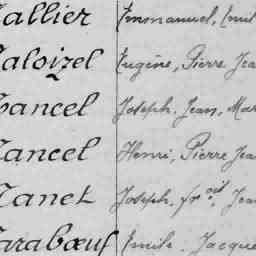 allier Emmanuel, Emil
aloizel Eugène, Pierre Jea
ancel Joseph. Jean, Mar
ancel Henri, Pierre Jea
anet Joseph, frois, Jea
arabœuf Emile. Jacque